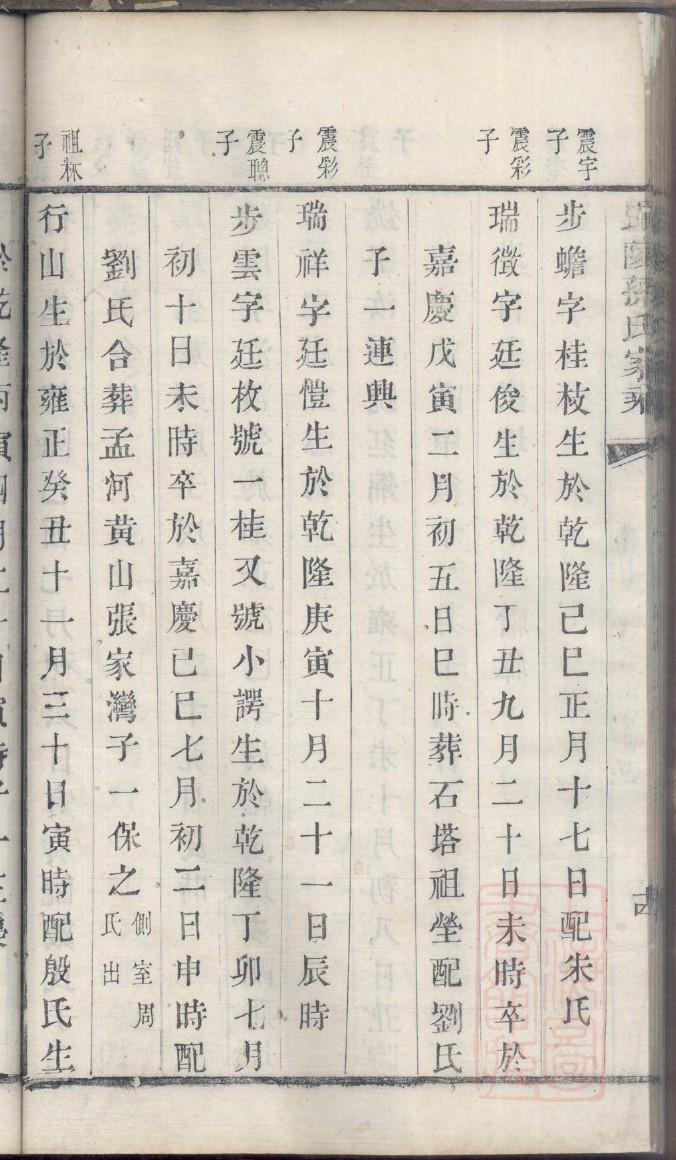 震宇子
步蟾字桂枝生於乾隆己巳正月十七日配朱氏
震彩子
瑞徵字廷俊生於乾隆丁丑九月二十日未時卒於
嘉慶戊寅二月初五日巳時葬石塔祖塋配劉氏
子一連興
震彩子
瑞祥字廷愷生於乾隆庚寅十月二十一日辰時
震聰子
步雲字廷枚號一桂又號小諤生於乾隆丁卯七月
初十日未時卒於嘉慶己巳七月初二日申時配
劉氏合葬孟河黃山張家灣子一保之側室周氏出
祖秝子
行山生於雍正癸丑十一月三十日寅時配殷氏生
於乾隆丙寅四月二十日寅時子一